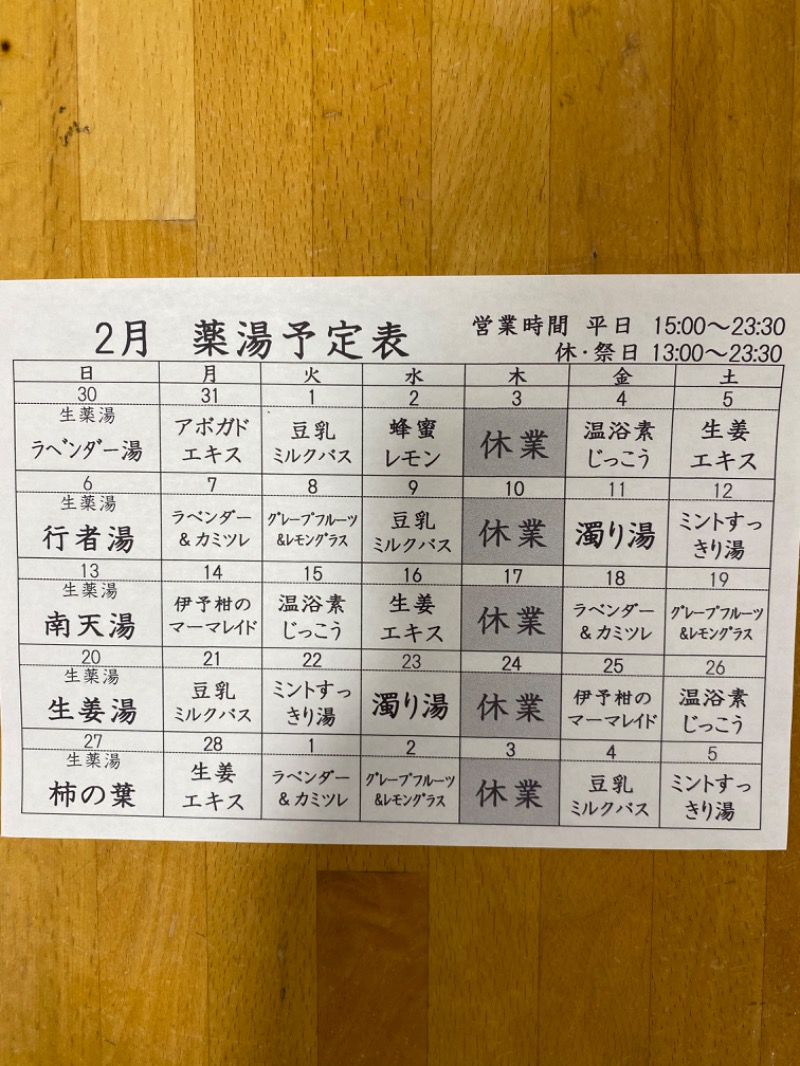 2月 薬湯予定表
営業時間 平日 15:00～23:30
休・祭日 13:00～23:30
日 月 火 水 木 金 土
30 31 1 2 3 4 5
生薬湯
ラベンダー湯
アボガド
エキス
豆乳
ミルクバス
蜂蜜
レモン
休業
温浴素
じっこう
生姜
エキス
6 7 8 9 10 11 12
生薬湯
行者湯
ラベンダー
&カミツレ
グレープフルーツ
&レモングラス
豆乳
ミルクバス
休業
濁り湯
ミントすっ
きり湯
13 14 15 16 17 18 19
生薬湯
南天湯
伊予柑の
マーマレイド
温浴素
じっこう
生姜
エキス
休業
ラベンダー
&カミツレ
グレープフルーツ
&レモングラス
20 21 22 23 24 25 26
生薬湯
生姜湯
豆乳
ミルクバス
ミントすっ
きり湯
濁り湯
休業
伊予柑の
マーマレイド
温浴素
じっこう
27 28 1 2 3 4 5
生薬湯
柿の葉
生姜
エキス
ラベンダー
&カミツレ
グレープフルーツ
&レモングラス
休業
豆乳
ミルクバス
ミントすっ
きり湯